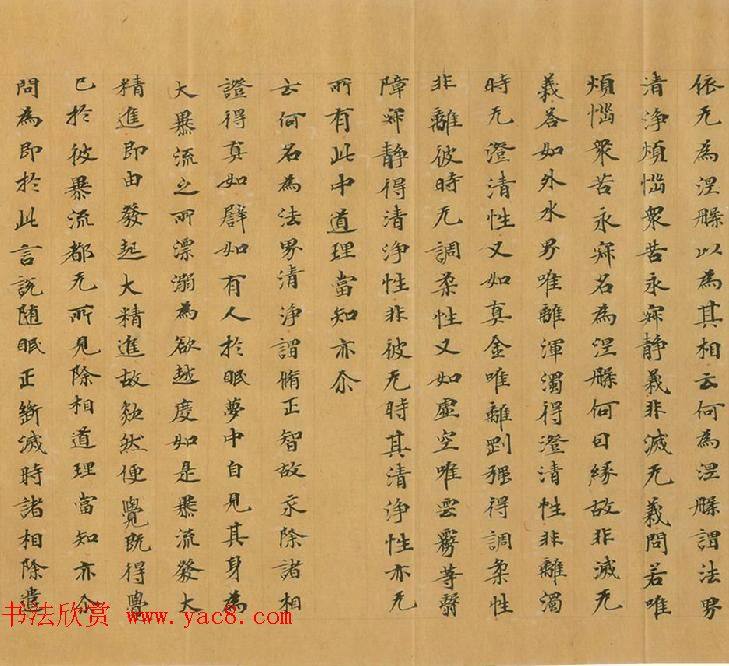 依无为涅槃以為其相云何為涅槃謂法界
清浄煩惱衆苦永寂静義非滅无義問若唯
煩惱衆苦永寂名為涅槃何因縁故非滅无
義荅如外水界唯離渾濁得澄清性非離濁
時无澄清性又如真金唯離剛强得調柔性
非離彼時无調柔性又如虚空唯雲霧等翳
障寂静得清浄性非彼无時其清浄性亦无
所有此中道理當知亦尒
云何名為法界清浄謂脩正智故永除諸相
證得真如譬如有人於眠夢中自見其身為
大暴流之所漂溺為欲越度如是暴流發大
精進即由發起大精進故欻然便覺既得覺
已於彼暴流都无所見除相道理當知亦尒
問為即於此言説随眠正斷滅時諸相除遣
书法欣赏 www.yac8.com